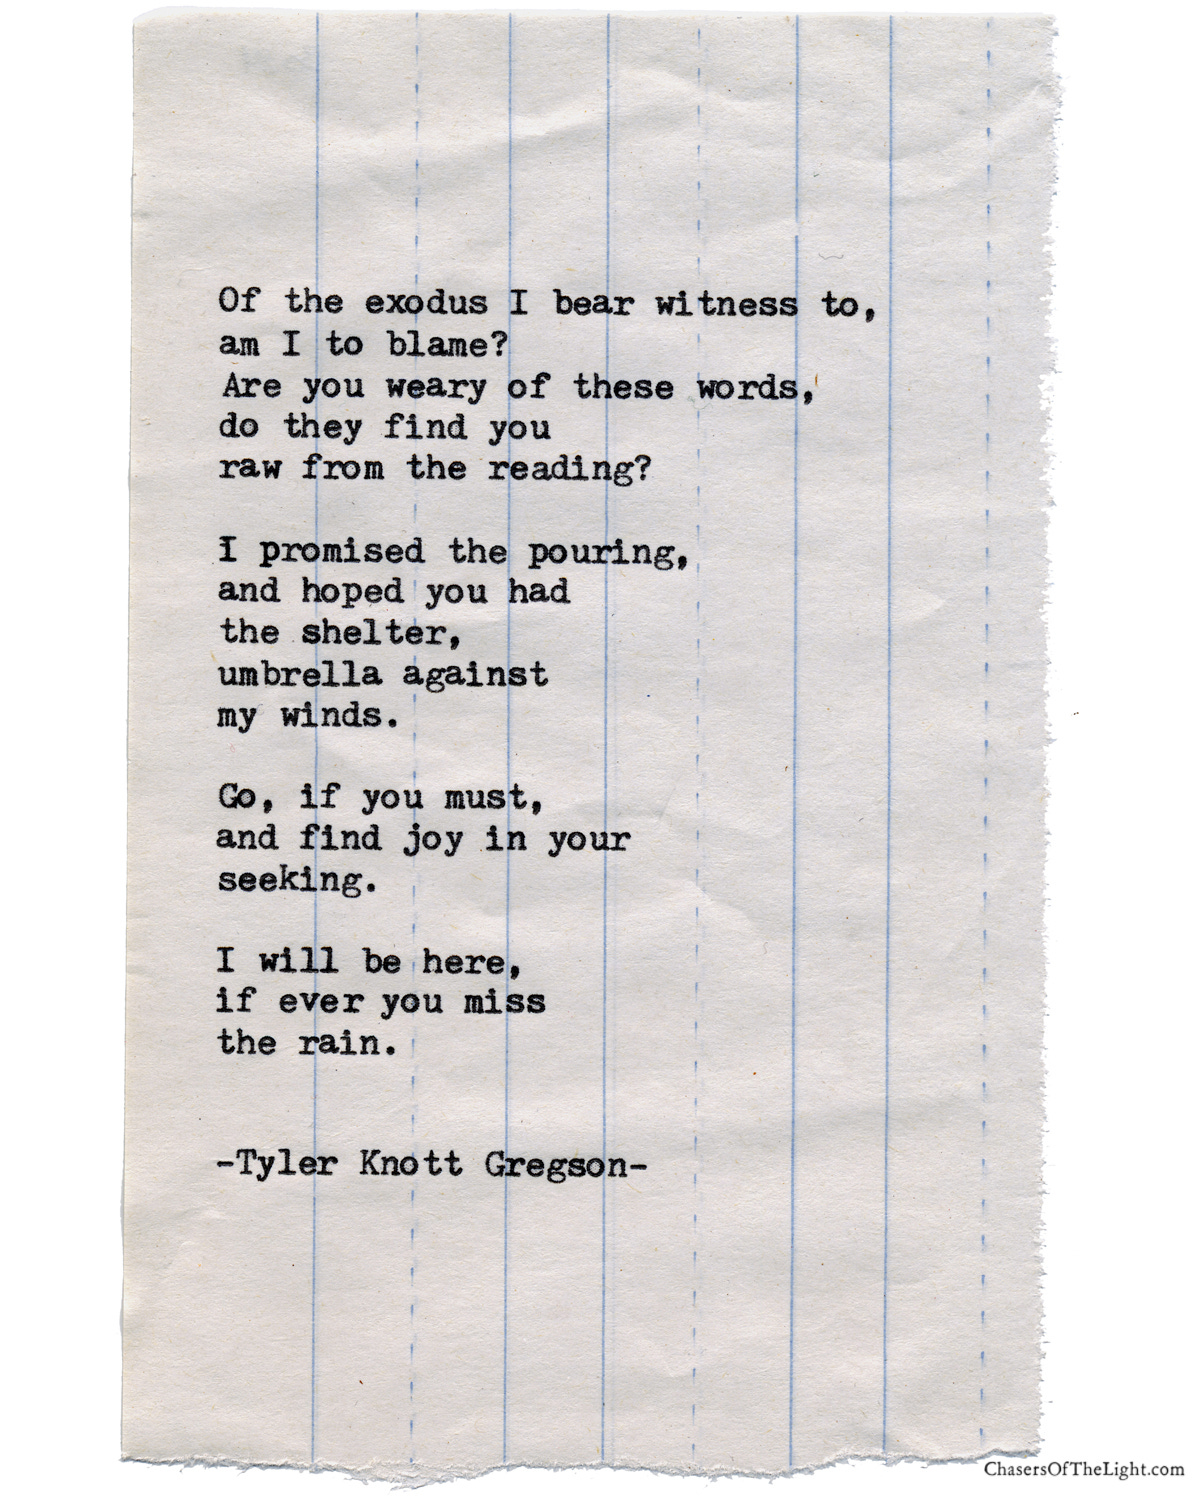 Of the exodus I bear witness to,
am I to blame?
Are you weary of these words,
do they find you
raw from the reading?
I promised the pouring,
and hoped you had
the shelter,
umbrella against
my winds.
Go, if you must,
and find joy in your
seeking.
I will be here,
if ever you miss
the rain.
-Tyler Knott Gregson-
ChasersOfTheLight.com